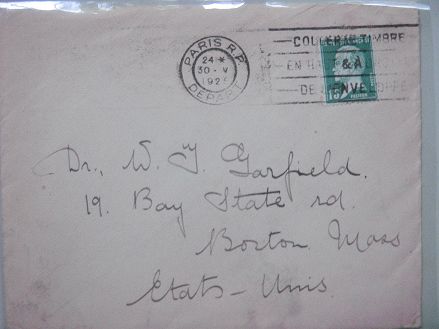 PARIS R.P.
24 *
30 - V
192
DEPART
COLLER LE TIMBRE
EN HA
& A
DE L'ENVELOPPE
Dr., W. T. Garfield.
19. Bay State rd.
Boston Mass
Etats-Unis.